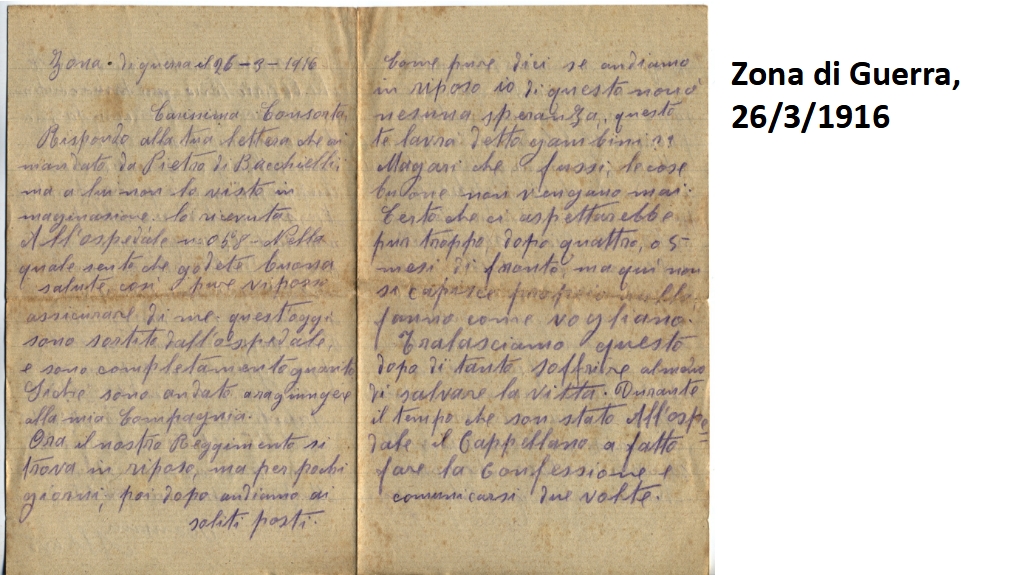 Zona di guerra il 26-3-1916
Carissima Consorte
Rispondo alla tua lettera che mi
mandato da Pietro di Bacchielli,
ma a lui non lo visto in
maginasione lo ricevuta
All'ospedale n. 058 Nella
quale sento che godete buona
salute, così pure vi posso
assicurare di me. quest'oggi
sono sortito dall'ospedale,
e sono completamente guarito
sono andato aragiungere
alla mia Compagnia.
Ora il nostro Reggimento si
trova in riposo, ma per pochi
giorni, poi dopo andiamo ai
soliti posti.
Come pure dici se andiamo
in riposo io di questo non ó
nesuna speranza, questo
te lavra detto gambini
Magari che fussi, le cose
buone non vengano mai.
Certo che ci aspetterebbe
pur troppo dopo quattro, o 5-
mesi di fronte, ma qui non
si capisce proprio nulla
fanno come vogliano.
Tralasciamo questo
dopo di tanto soffrire almeno
di salvare la vitta. Durante
il tempo che son stato All'ospe
dale il Cappellano a fatto
fare la Confessione e
comunicarsi due volte.
Zona di Guerra,
26/3/1916